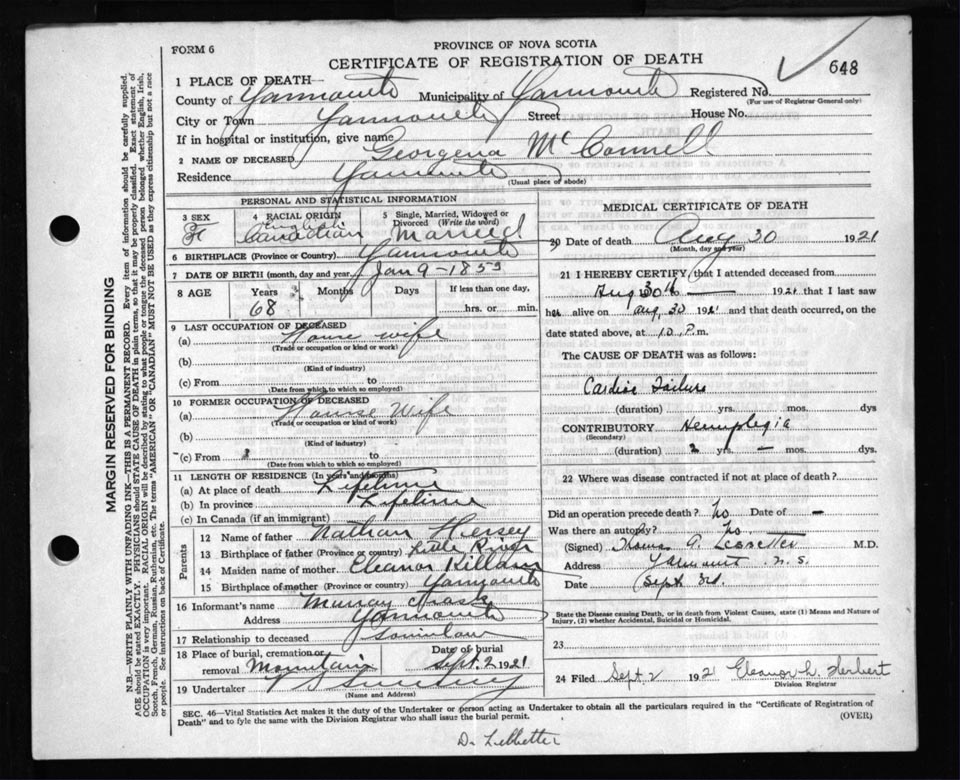 FORM 6
PROVINCE OF NOVA SCOTIA
CERTIFICATE OF REGISTRATION OF DEATH
648
1 PLACE OF DEATH
County of Yarmouth Municipality of Yarmouth Registered No.
(For use of Registrar General only)
City or Town Yarmouth Street House No.
If in hospital or institution, give name
2 NAME OF DECEASED Georgena McConnell
Residence Yarmouth
(Usual place of abode)
PERSONAL AND STATISTICAL INFORMATION
3 SEX F
4 RACIAL ORIGIN English Canadian
5 Single, Married, Widowed or Divorced (Write the word) Married
6 BIRTHPLACE (Province or Country) Yarmouth
7 DATE OF BIRTH (month, day and year) Jan 9-1853
8 AGE Years 68 Months Days If less than one day, hrs. or min.
9 LAST OCCUPATION OF DECEASED
(a) House wife
(Trade or occupation or kind or work)
(b)
(Kind of industry)
(c) From to
(Date from which to which so employed)
10 FORMER OCCUPATION OF DECEASED
(a) House Wife
(Trade or occupation or kind of work)
(b)
(Kind of industry)
(c) From to
(Date from which to which so employed)
11 LENGTH OF RESIDENCE (In years and months)
(a) At place of death Lifetime
(b) In province Lifetime
(c) In Canada (if an immigrant)
Parents
12 Name of father Nathan Hersey
13 Birthplace of father (Province or country) Little River
14 Maiden name of mother Eleanor Killam
15 Birthplace of mother (Province or country) Yarmouth
16 Informant's name Murray
Address Yarmouth
17 Relationship to deceased Soninlaw
18 Place of burial, cremation or removal Mountain Date of burial Sept. 2 1921
19 Undertaker
(Name and Address)
MEDICAL CERTIFICATE OF DEATH
20 Date of death Aug 30 1921
(Month, day and year)
21 I HEREBY CERTIFY that I attended deceased from
Aug 30th to — 1921 that I last saw
her alive on Aug. 30 1921 and that death occurred, on the
date stated above, at 10 P.m.
The CAUSE OF DEATH was as follows:
Cardiac Failure
(duration) yrs. mos. dys
CONTRIBUTORY Hemiplegia
(Secondary)
(duration) 2 yrs. — mos. dys
22 Where was disease contracted if not at place of death?
Did an operation precede death? No Date of —
Was there an autopsy? No
(Signed) Thomas A. Lebbetter M.D.
Address Yarmouth N.S.
Date Sept 3d.
State the Disease causing Death, or in death from Violent Causes, state (1) Means and Nature of
Injury, (2) whether Accidental, Suicidal or Homicidal.
23
24 Filed Sept. 2 1921 Eleanor L. Herbert
Division Registrar
SEC. 46—Vital Statistics Act makes it the duty of the Undertaker or person acting as Undertaker to obtain all the particulars required in the "Certificate of Registration of
Death" and to fyle the same with the Division Registrar who shall issue the burial permit.
(OVER)
Dr Lebbetter
MARGIN RESERVED FOR BINDING
N.B.—WRITE PLAINLY WITH UNFADING INK—THIS IS A PERMANENT RECORD. Every item of information should be carefully supplied.
AGE should be stated EXACTLY. PHYSICIANS should STATE CAUSE OF DEATH in plain terms, so that it may be properly classified. Exact statement of
OCCUPATION is very important. RACIAL ORIGIN will be described by stating to what people or tongue the deceased person belonged whether English, Irish,
Scotch, French, German, Russian, Ruthenian, etc. The terms "AMERICAN" OR "CANADIAN" MUST NOT BE USED as they express citizenship but not a race
or people. See instructions on back of Certificate.